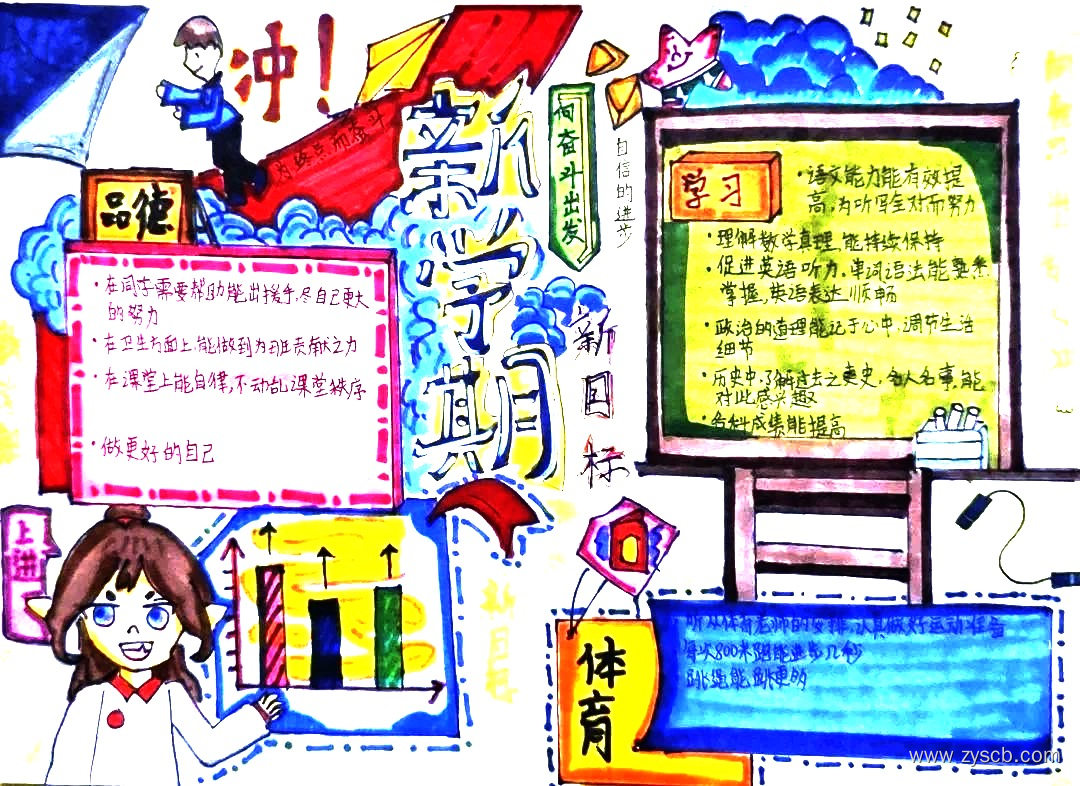 冲！
为终点而奋斗
新学期
向奋斗出发
自信的进步
新目标
品德
·在同学需要帮助能出援手,尽自己更大
的努力
·在卫生方面上,能做到为班贡献之力
·在课堂上能自律,不动乱课堂秩序
·做更好的自己
学习
·语文能力能有效提
高,为听写全对而努力
·理解数学真理,能持续保持
·促进英语听力,单词语法能要求
掌握,英语表达顺畅
·政治的道理能记于心中,调节生活
细节
·历史中,了解过去之史,名人名事,能
对此感兴趣
·各科成绩能提高
上进
体育
听从体育老师的安排,认真做好运动准备
每次800米跑能进步几秒
跳绳能跳更多
www.zyscb.com